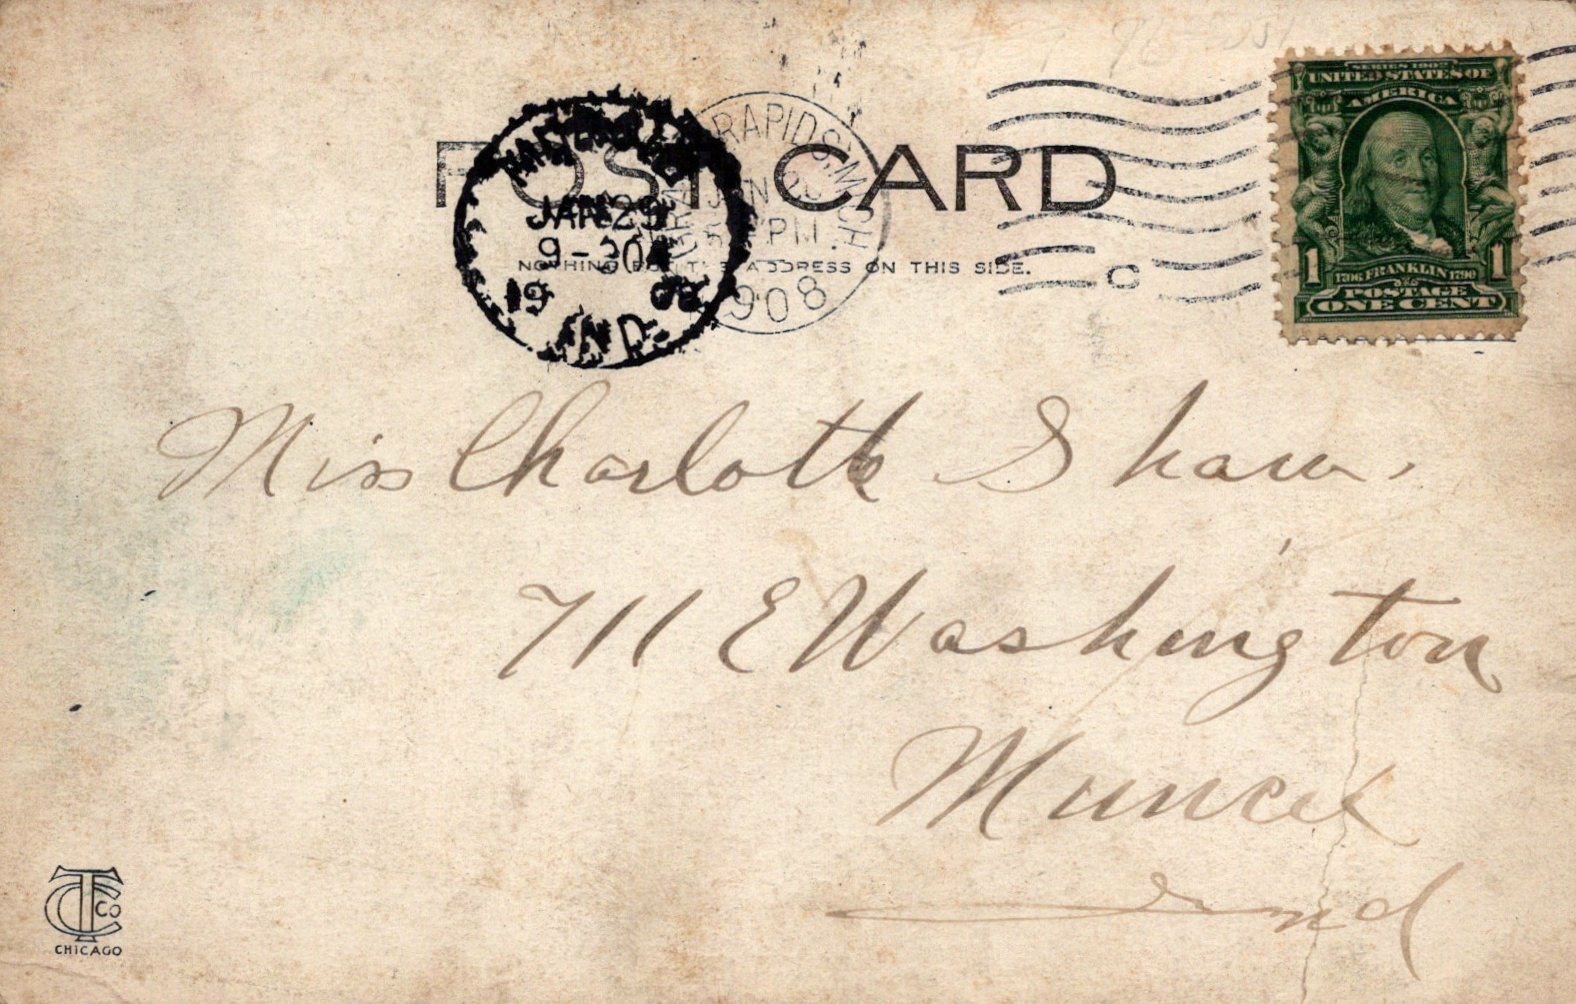 POST CARD
NOTHING BUT THE ADDRESS ON THIS SIDE.
RAPIDS, MICH
5 PM
1908
JAN 29
9-30A
1908
IND.
C
SERIES 1902
UNITED STATES OF
AMERICA
1 1706 FRANKLIN 1790 1
POSTAGE
ONE CENT
Miss Charlotte Shaw.
711 E Washington
Muncie
Ind
CT Co
CHICAGO